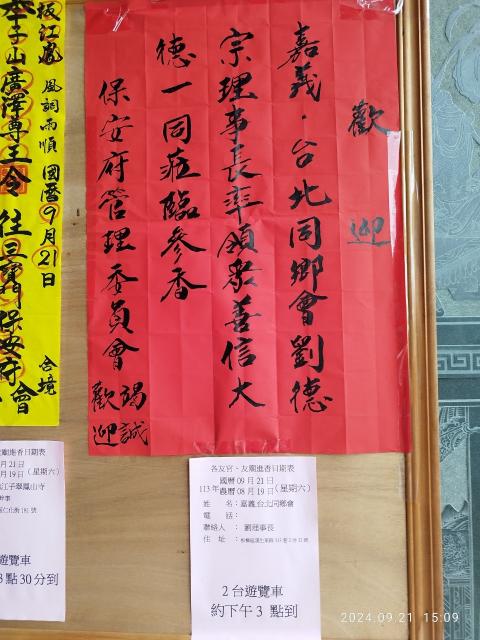 歡迎
嘉義．台北同鄉會劉德
宗理事長率領眾善信大
德一同蒞臨參香
保安府管理委員會 竭誠
歡迎
風調雨順 國曆9月21日 合境
山廣澤尊王令 往三 保安府會
各友宮、友廟進香日期表
國曆09月21日
113年農曆08月19日(星期六)
姓 名：嘉義台北同鄉會
電 話：
聯絡人 ：劉理事長
住 址 ：板橋區
2台遊覽車
約下午3 點到
友廟進香日期表
月21日
月19日(星期六)
江子翠鳳山寺
幹事
仁化街181號
遊覽車
3點30分到
2024.09.21 15:09